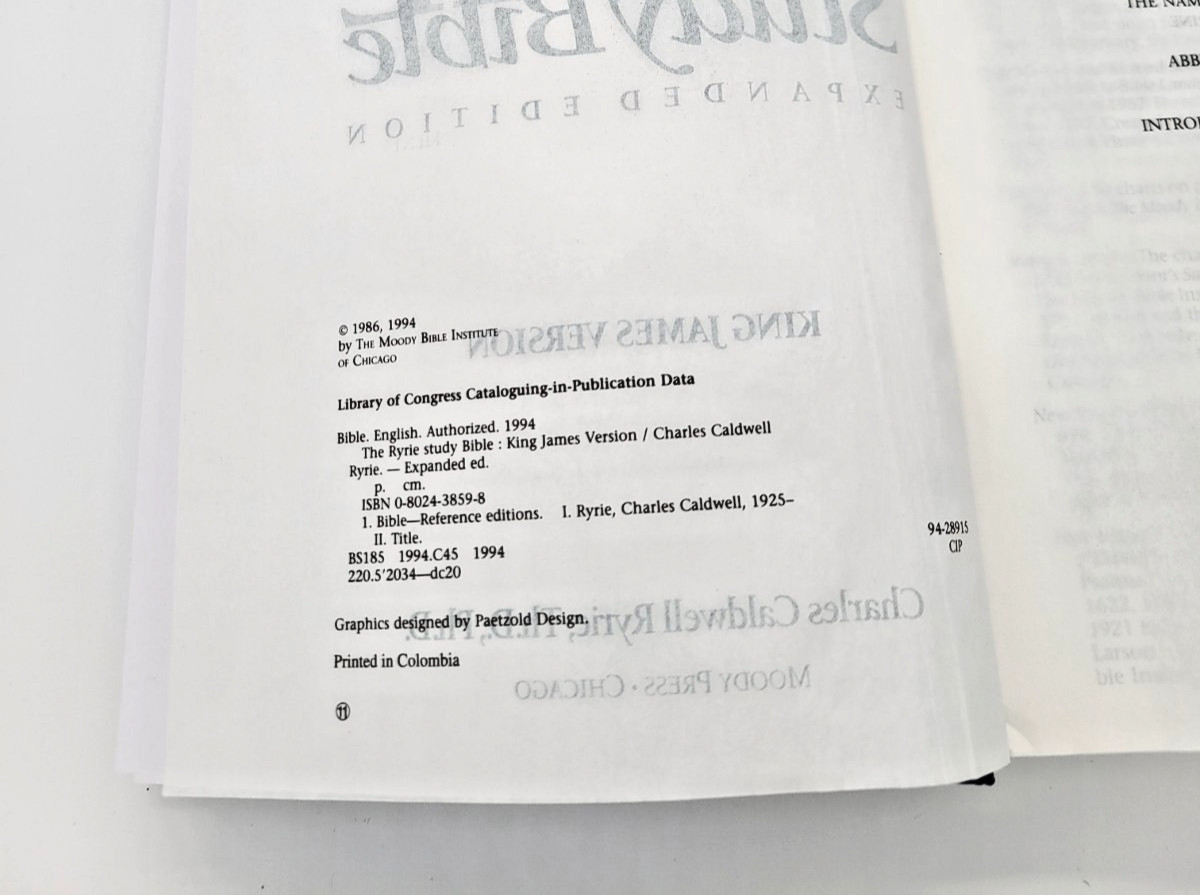 Study Bible
EXPANDED EDITION
© 1986, 1994
by THE MOODY BIBLE INSTITUTE
OF CHICAGO
KING JAMES VERSION
Library of Congress Cataloguing-in-Publication Data
Bible. English. Authorized. 1994
The Ryrie study Bible : King James Version / Charles Caldwell
Ryrie. — Expanded ed.
p. cm.
ISBN 0-8024-3859-8
1. Bible—Reference editions. I. Ryrie, Charles Caldwell, 1925–
II. Title.
BS185 1994.C45 1994
220.5'2034—dc20
94-28915
CIP
Charles Caldwell Ryrie, Th.D., Ph.D.
Graphics designed by Paetzold Design.
Printed in Colombia
MOODY PRESS · CHICAGO
⑪
THE NAM
ABB
INTRO